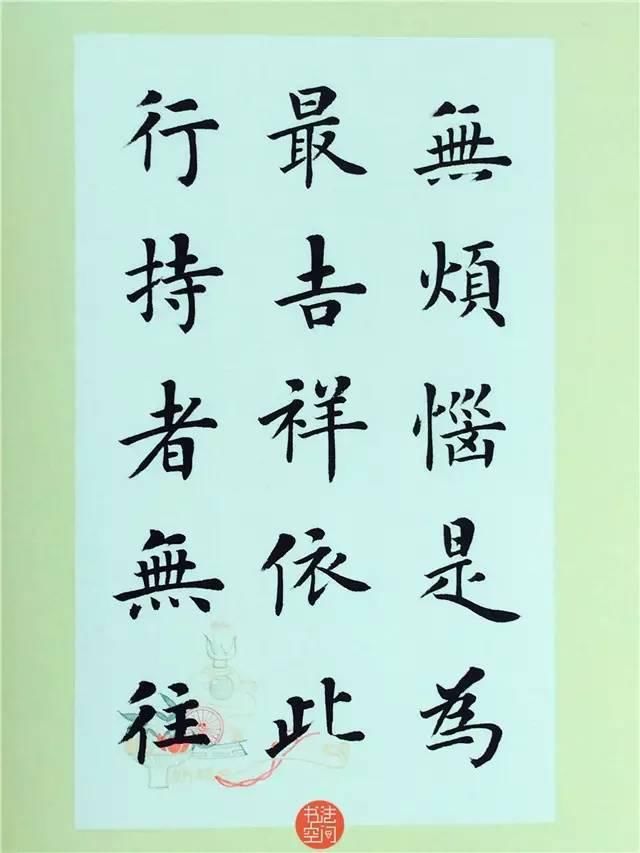 無煩惱是為
最吉祥依此
行持者無往
书法
空间